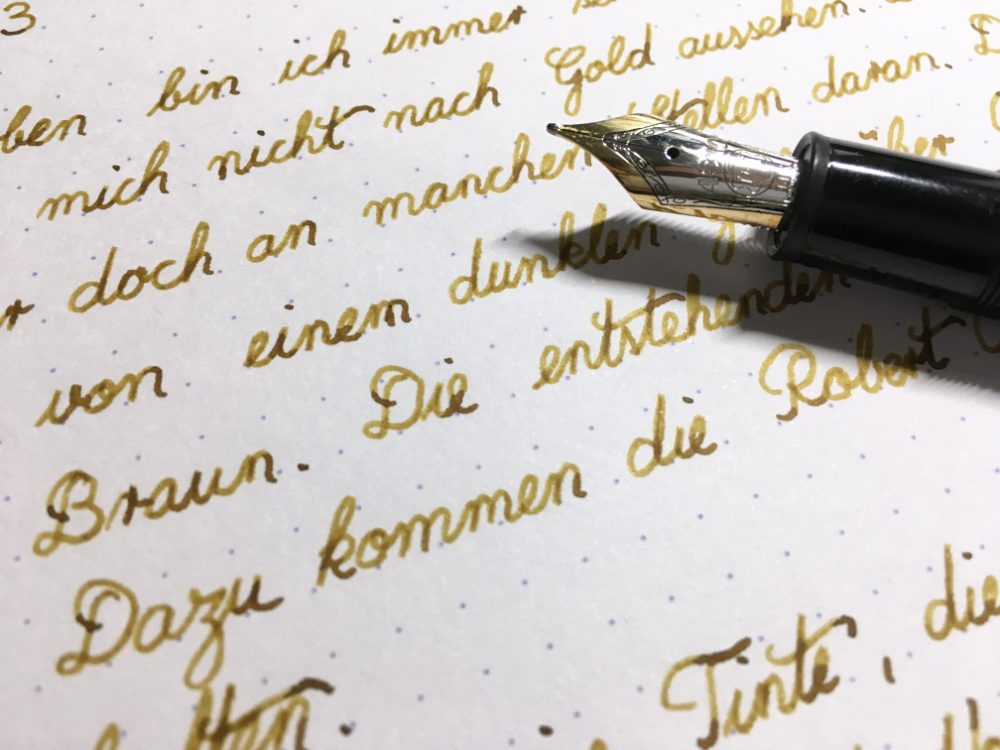 3
ben bin ich immer
mich nicht nach Gold aussehen.
r doch an manchen Stellen daran.
von einem dunklen über
Braun. Die entstehenden
Dazu kommen die Robert
Tinte, die